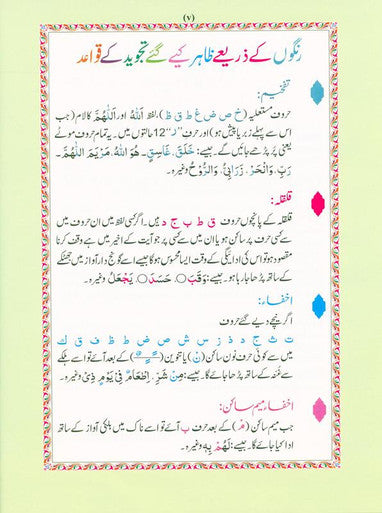 (۷)
رنگوں کے ذریعے ظاہر کیے گئے تجوید کے قواعد
تفخیم:
حروف مستعلیہ (خ ص ض غ ط ق ظ)، لفظ اَللّٰهُ اور اَللّٰهُمَّ کا لام (جب
اس سے پہلے زبر یا پیش ہو) اور حرف "ر" 12 حالتوں میں۔ یہ تمام حروف موٹے
یعنی پُر پڑھے جائیں گے۔ جیسے: خَلَقَ، غَاسِقٍ، هُوَ اللّٰهُ، مَرْيَمَ اللّٰهُمَّ،
رَبِّ، وَانْحَرْ، رَدَّنِيْ، وَالرُّوْحُ وغیرہ۔
قلقلہ:
قلقلہ کے پانچوں حروف ق ط ب ج د ہیں۔ اگر کسی لفظ میں ان حروف میں
سے کسی حرف پر سکون ہو یا ان میں سے کسی پر جو آیت کے اخیر میں ہے وقف کرنا
مقصود ہو تو اس کی ادائیگی کے وقت ایسا محسوس ہوگا جیسے اسے گونج دار آواز میں جھٹکے
کے ساتھ پڑھا جا رہا ہو۔ جیسے: وَقَبَ ○ حَسَدَ ○ يَجْعَلْ وغیرہ۔
اخفاء:
اگر نیچے دیے گئے حروف
ت ث ج د ذ ز س ش ص ض ط ظ ف ق ك
میں سے کوئی حرف نون ساکن (نْ) یا تنوین کے بعد آئے تو اسے ہلکے
سے غنہ کے ساتھ پڑھا جائے گا۔ جیسے: مِنْ شَرِّ، اِطْعَامٌ فِيْ يَوْمٍ ذِيْ وغیرہ۔
اخفاء میم ساکن:
جب میم ساکن (مْ) کے بعد حرف ب آئے تو اسے ناک میں ہلکی آواز کے ساتھ
ادا کیا جائے گا۔ جیسے: لَهُمْ بِهٖ وغیرہ۔